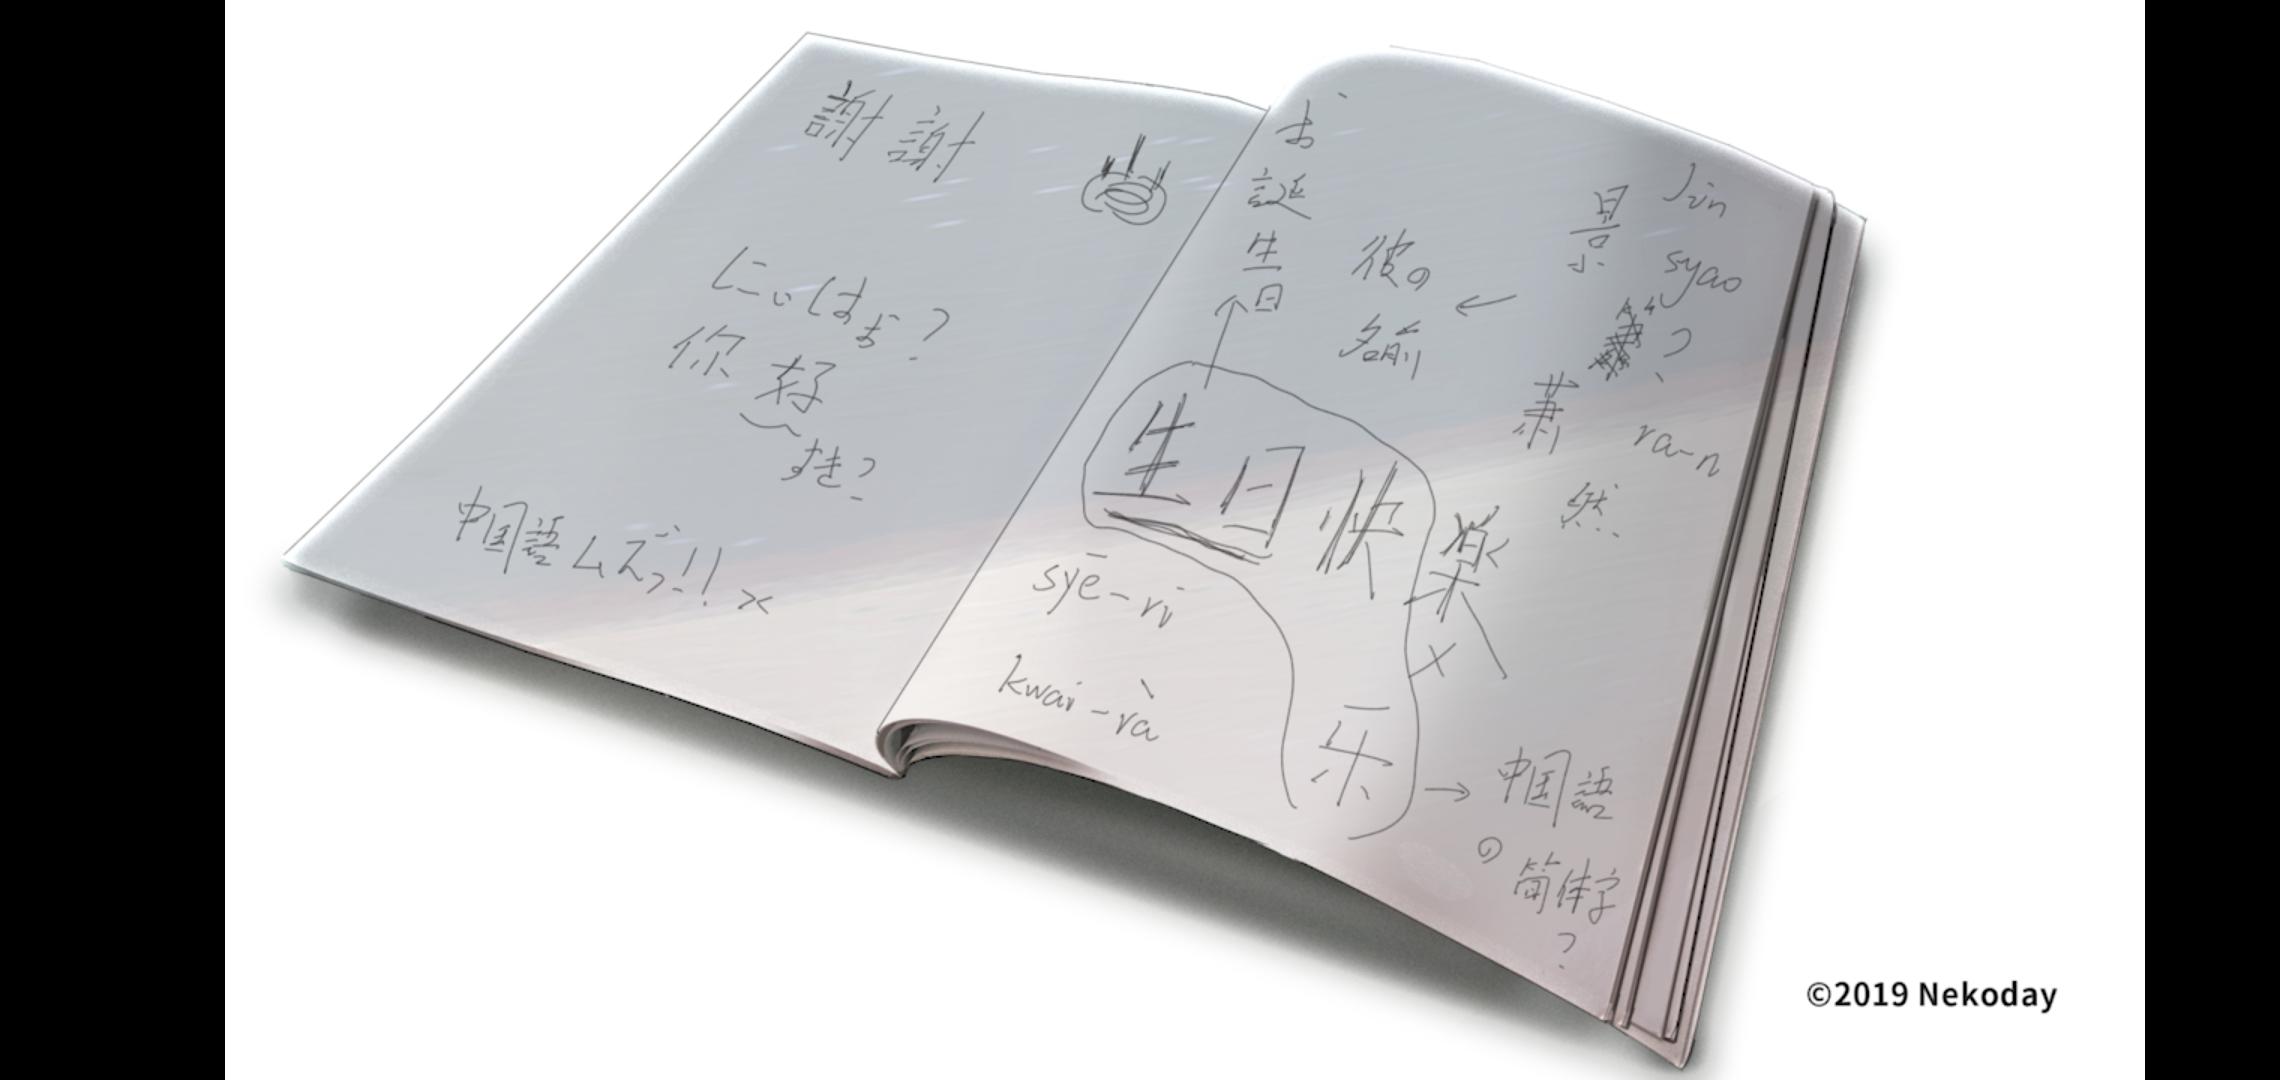 謝謝
にぃはぉ?
你好
すき?
中国語ムズっ!!
お誕生日
彼の
名前
景 Jin
syao
?
蕭
ra-n
然
生日快楽
×
syē-ri
kwai-rà
乐
中国語
の
简体字
?
©2019 Nekoday